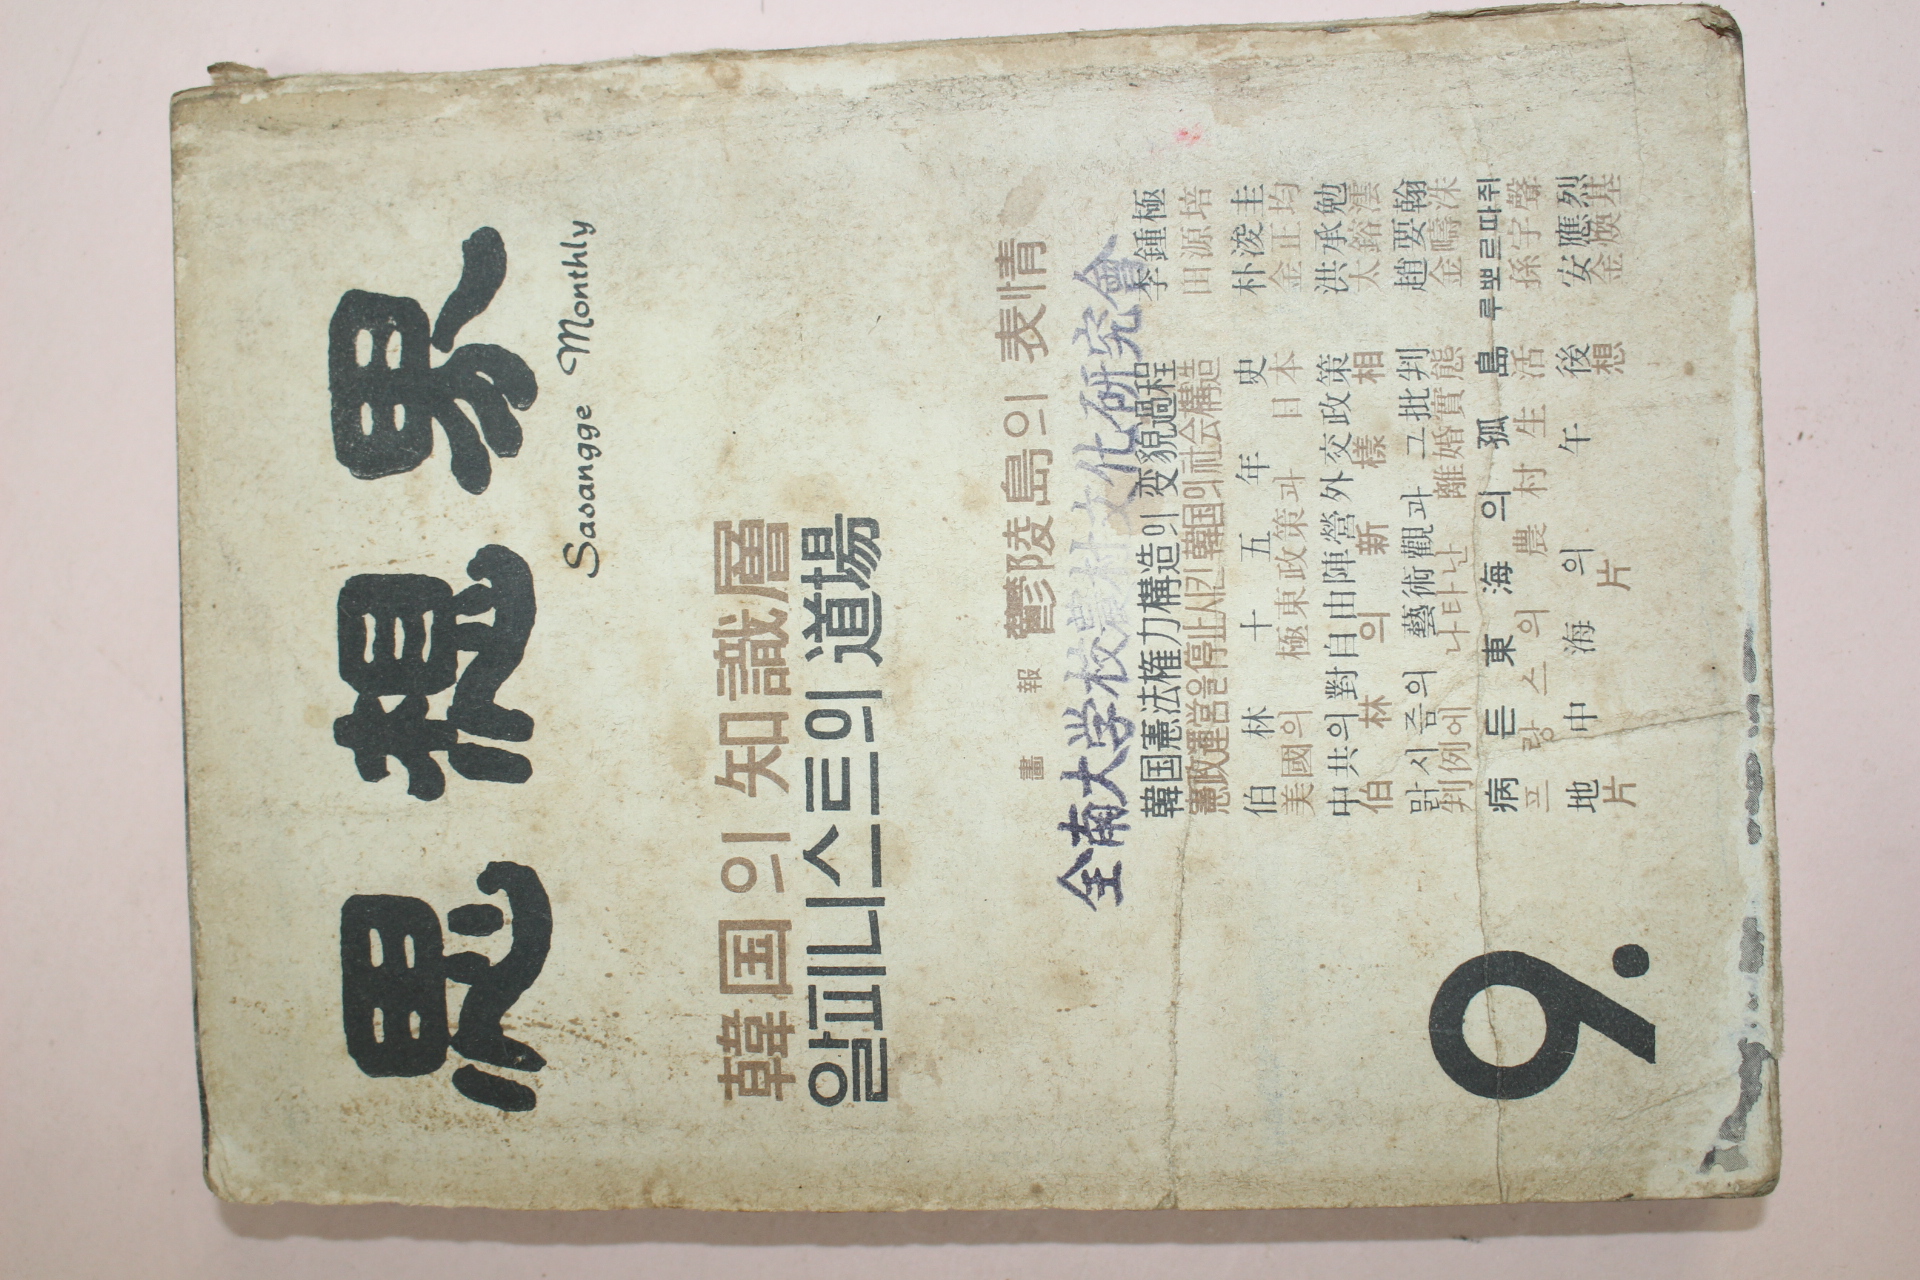 思想界
Sasangge Monthly
韓国의 知識層
알피니스트의 道場
畫報 鬱陵島의 表情
全南大学校農村文化研究會
韓国憲法権力構造의 変貌過程 李鍾極
憲政運営을 停止시킨 韓国의 社会構造 田源培
伯林十五年史 朴浚圭
美國의 極東政策과 日本 金正均
中共의 對自由陣營外交政策 洪承勉
伯林의 新樣相 太鎔澐
맑시즘의 藝術觀과 그 批判 趙要翰
判例에 나타난 離婚實態 金疇洙
病든 東海의 孤島 루뽀르따쥐
프랑스의 農村生活 孫宇聲
地中海의 午後 安應烈
片片想 金煥基
9.